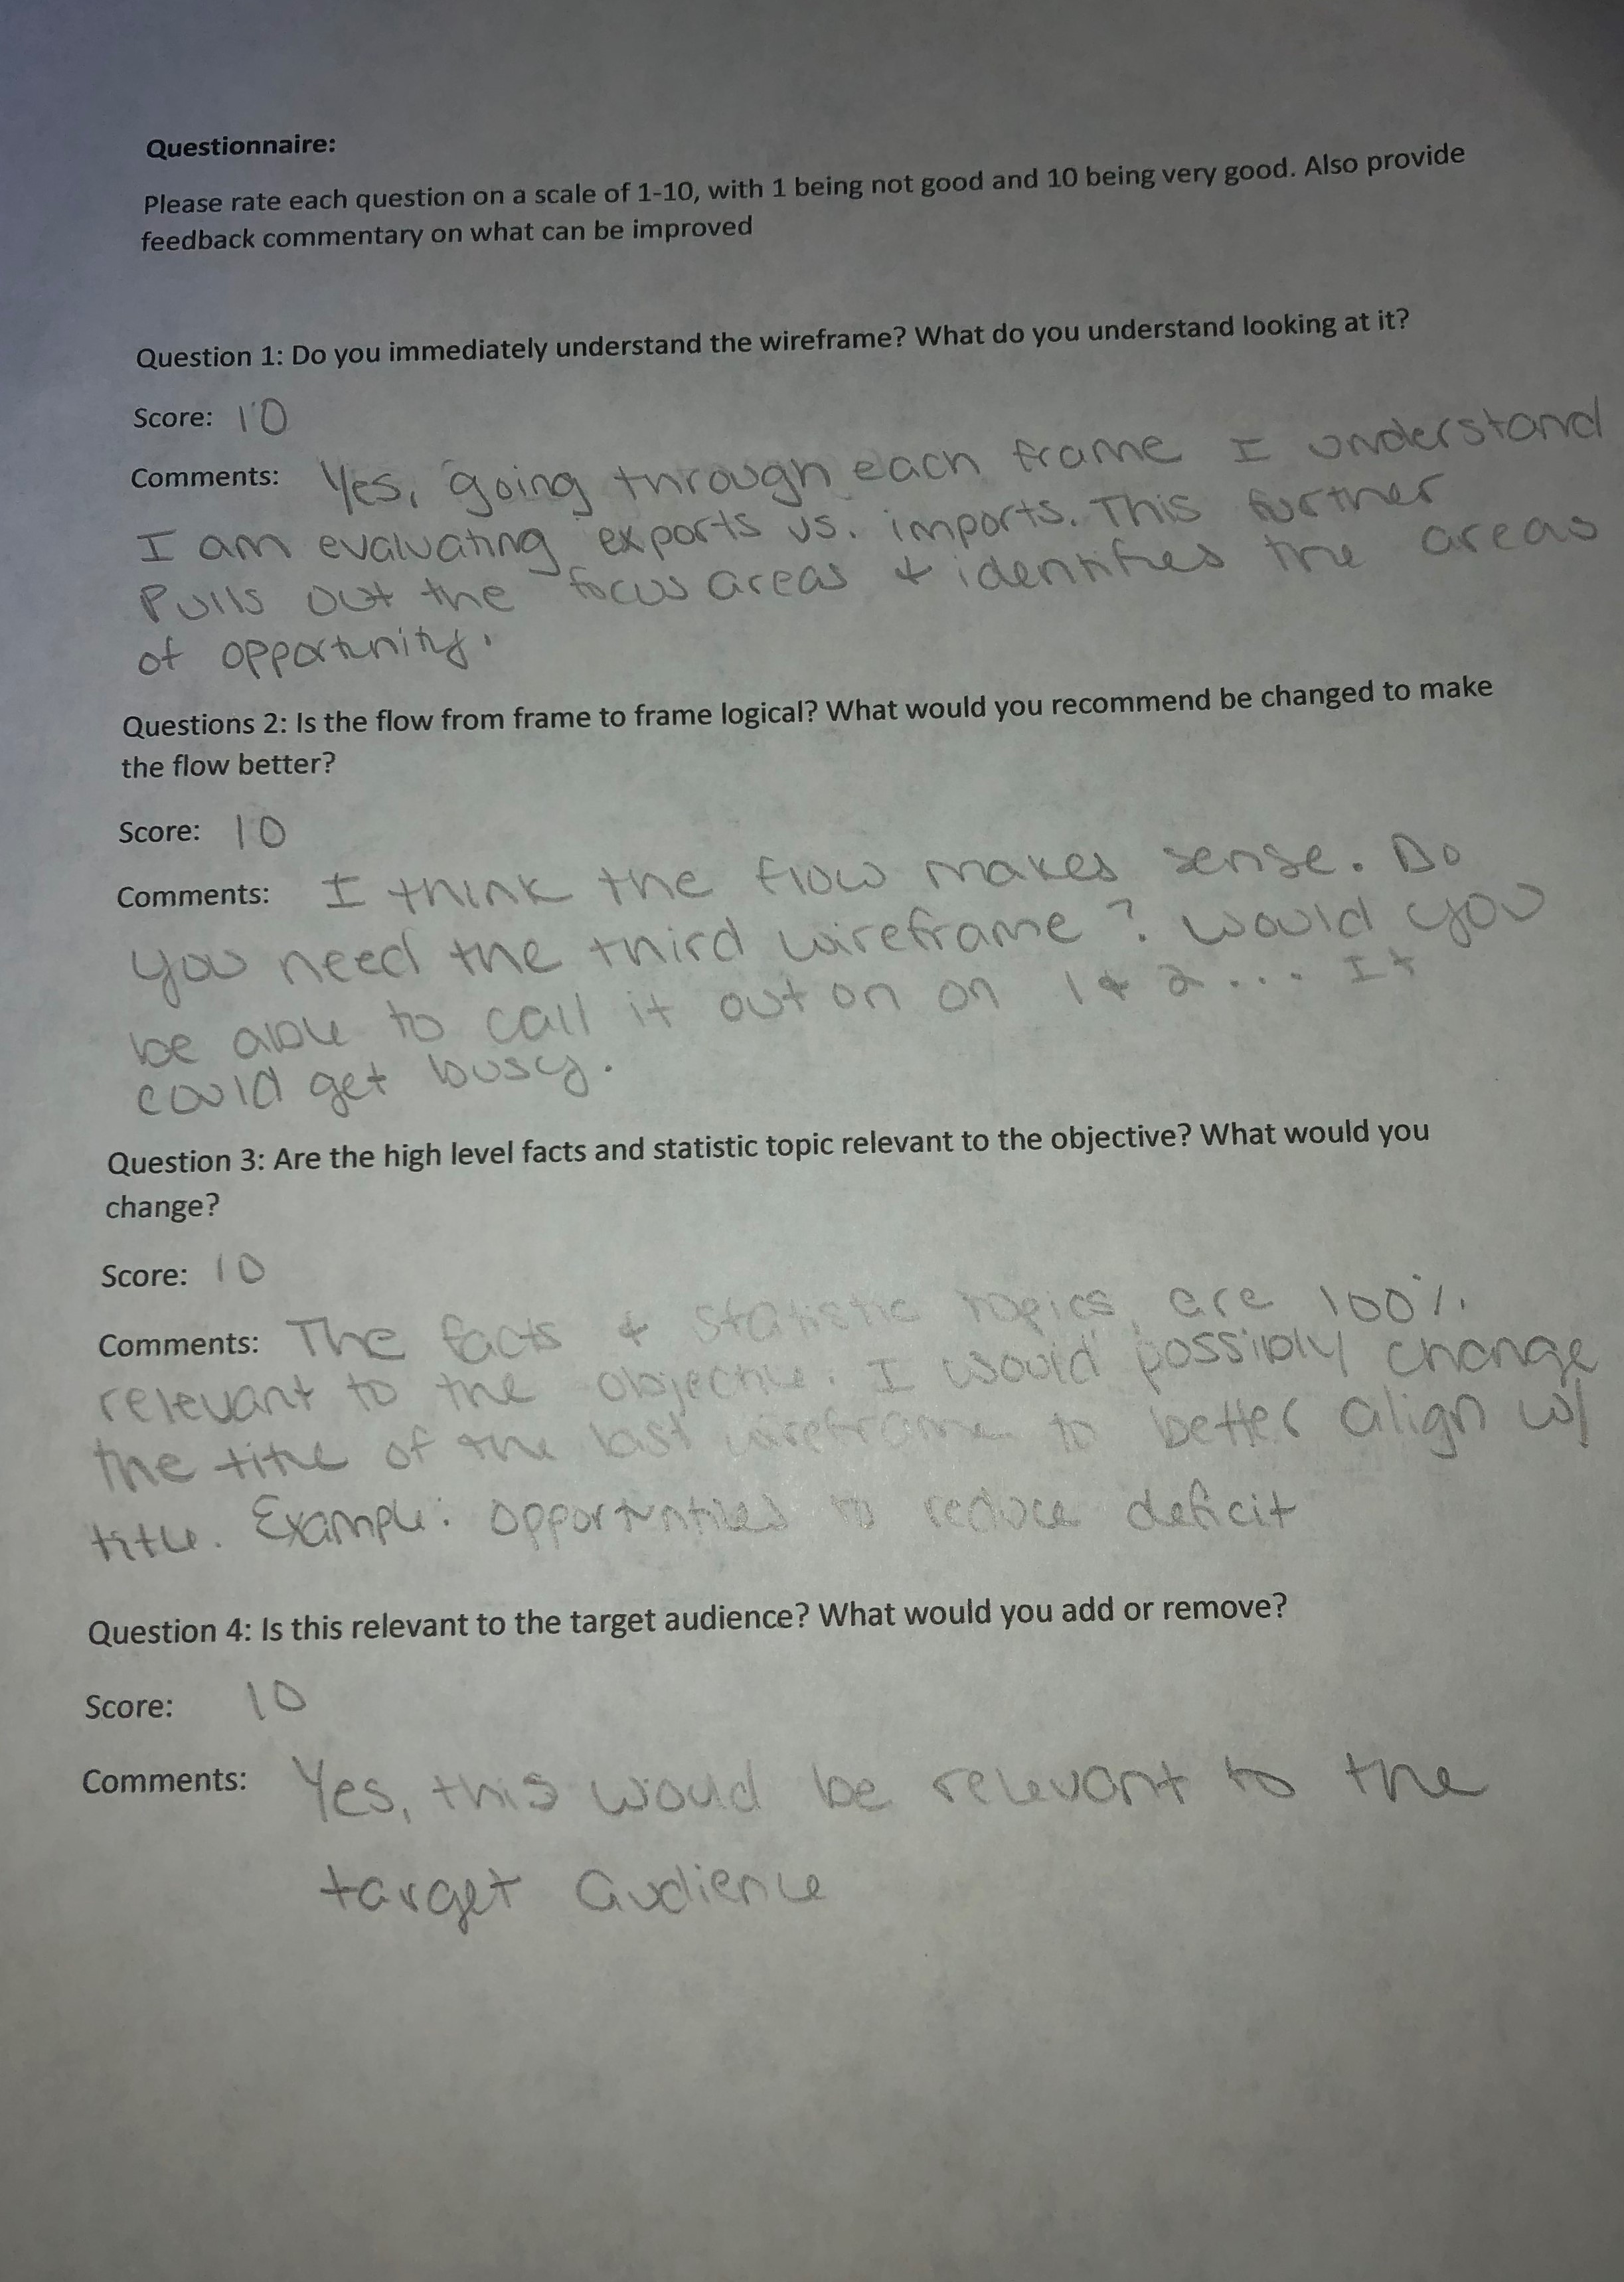 Questionnaire:
Please rate each question on a scale of 1-10, with 1 being not good and 10 being very good. Also provide
feedback commentary on what can be improved
Question 1: Do you immediately understand the wireframe? What do you understand looking at it?
Score: 10
Comments: Yes, going through each frame I understand
I am evaluating exports vs. imports. This further
Pulls out the focus areas & identifies the areas
of opportunity.
Questions 2: Is the flow from frame to frame logical? What would you recommend be changed to make
the flow better?
Score: 10
Comments: I think the flow makes sense. Do
you need the third wireframe? Would you
be able to call it out on on 1 & 2... It
could get busy.
Question 3: Are the high level facts and statistic topic relevant to the objective? What would you
change?
Score: 10
Comments: The facts & statistic topics are 100%
relevant to the objective. I would possibly change
the title of the last wireframe to better align w/
title. Example: opportunities to reduce deficit
Question 4: Is this relevant to the target audience? What would you add or remove?
Score: 10
Comments: Yes, this would be relevant to the
target audience